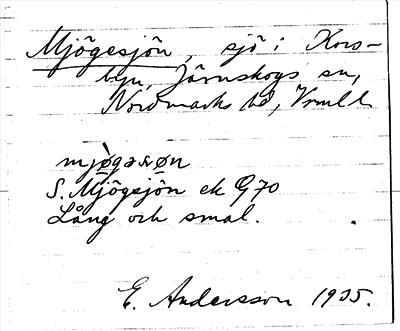 Mjögesjön, sjö i Koro-
byn, Järnskogs sn,
Nordmarks hd, Vrmld
mjògəsøn
S. Mjögesjön ek G70
Lång och smal.
E. Andersson 1935.